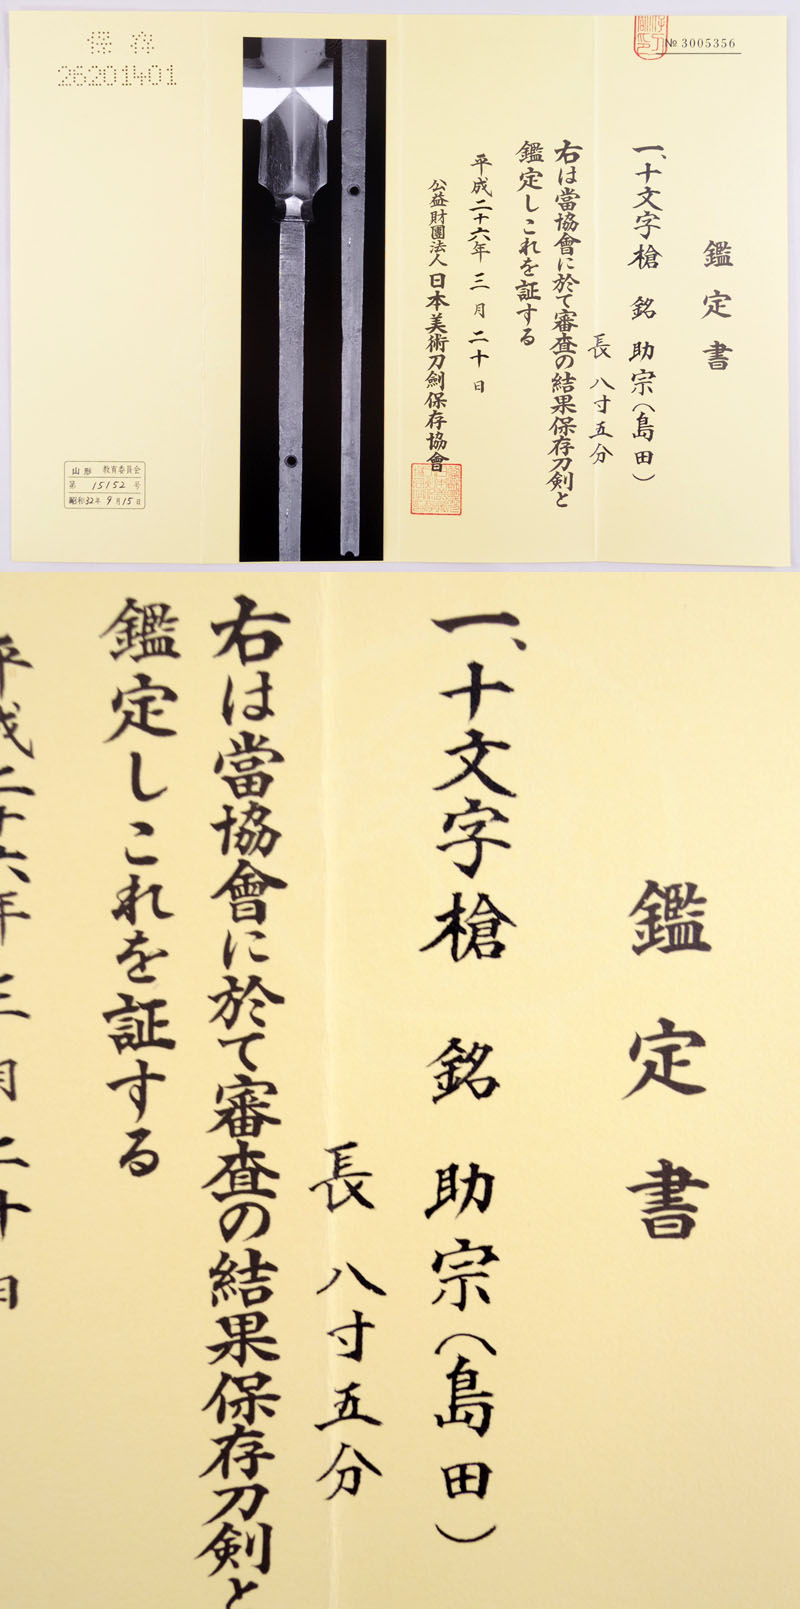 № 3005356
鑑定書
一、十文字槍 銘 助宗（島田）
長 八寸五分
右は當協會に於て審査の結果保存刀剣と
鑑定しこれを証する
平成二十六年 三月 二十日
公益財團法人 日本美術刀劍保存協會
保存
26201401
山形 教育委員会
第 15152 号
昭和32年 9月15日
鑑定書
一、十文字槍 銘 助宗（島田）
長 八寸五分
右は當協會に於て審査の結果保存刀剣と
鑑定しこれを証する
平成二十六年 三月 二十日